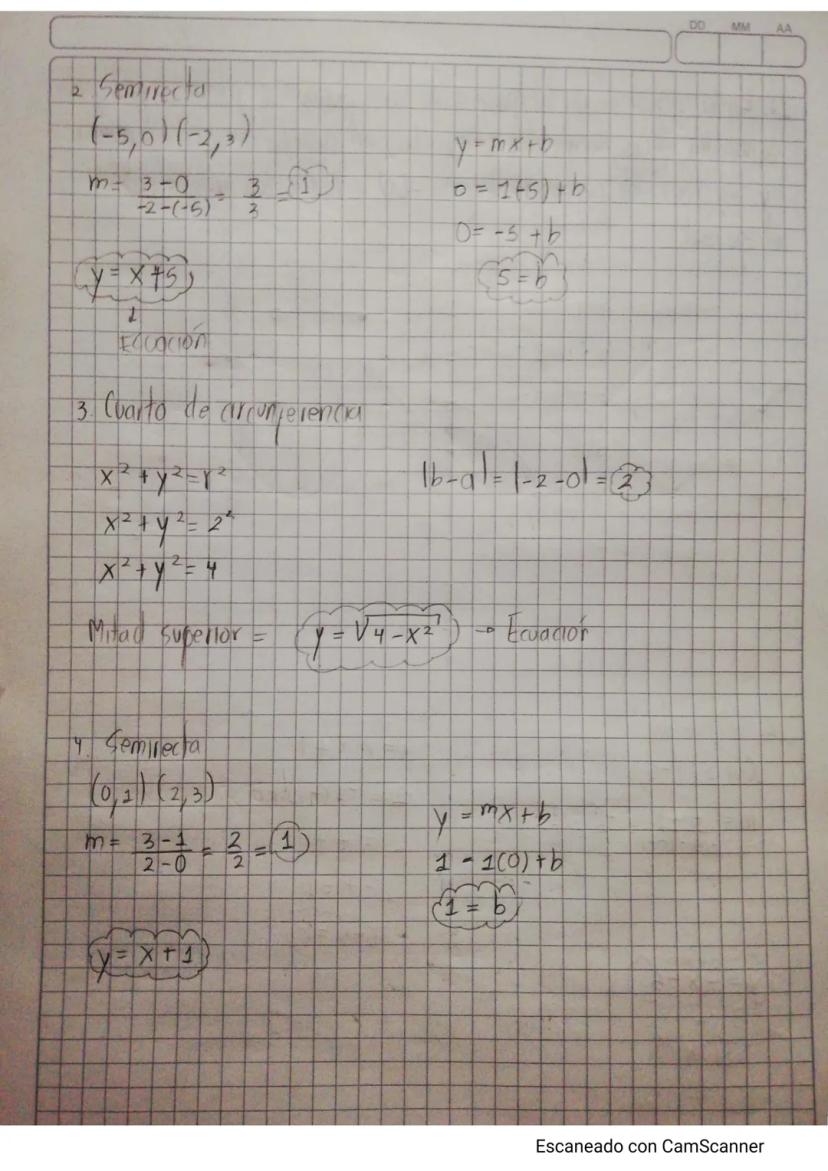 DD MM AA
2 Semirecta
(-5,0) (-2,3)
m= 3-0 / -2-(-5) = 3/3 = 1
y = mx+b
0 = 1(-5)+b
0= -5 +b
5=b
y = x+5
↓
Ecuación
3. Cuarto de circunferencia
x²+y²=r²
x²+y²= 2²
x²+y²= 4
|b-a|= |-2-0| = 2
Mitad superior = y = √4-x² → Ecuación
4. Semirecta
(0,1) (2,3)
m= 3-1 / 2-0 = 2/2 = 1
y = mx+b
1 = 1(0)+b
1 = b
y= x+1
Escaneado con CamScanner